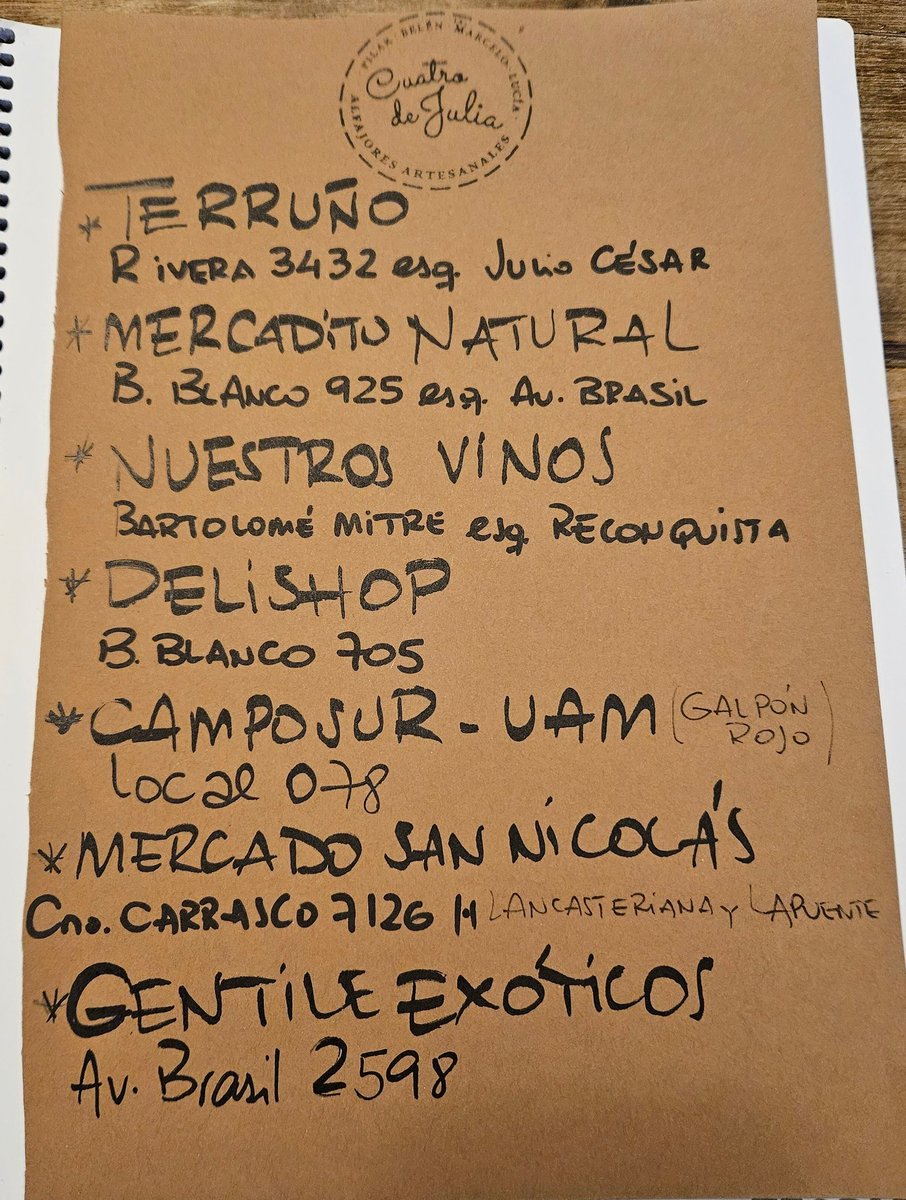 PILAR · BELÉN · MARCELO · LUCÍA ·
Cuatro
de Julia
ALFAJORES ARTESANALES
* TERRUÑO
RIVERA 3432 esq. JULIO CÉSAR
* MERCADITO NATURAL
B. BLANCO 925 esq. AV. BRASIL
* NUESTROS VINOS
BARTOLOMÉ MITRE esq. RECONQUISTA
* DELISHOP
B. BLANCO 705
* CAMPOSUR - UAM (GALPÓN
ROJO)
Local 078
* MERCADO SAN NICOLÁS
Cno. CARRASCO 7126 H LANCASTERIANA y LAPUENTE
* GENTILE EXÓTICOS
Av. Brasil 2598